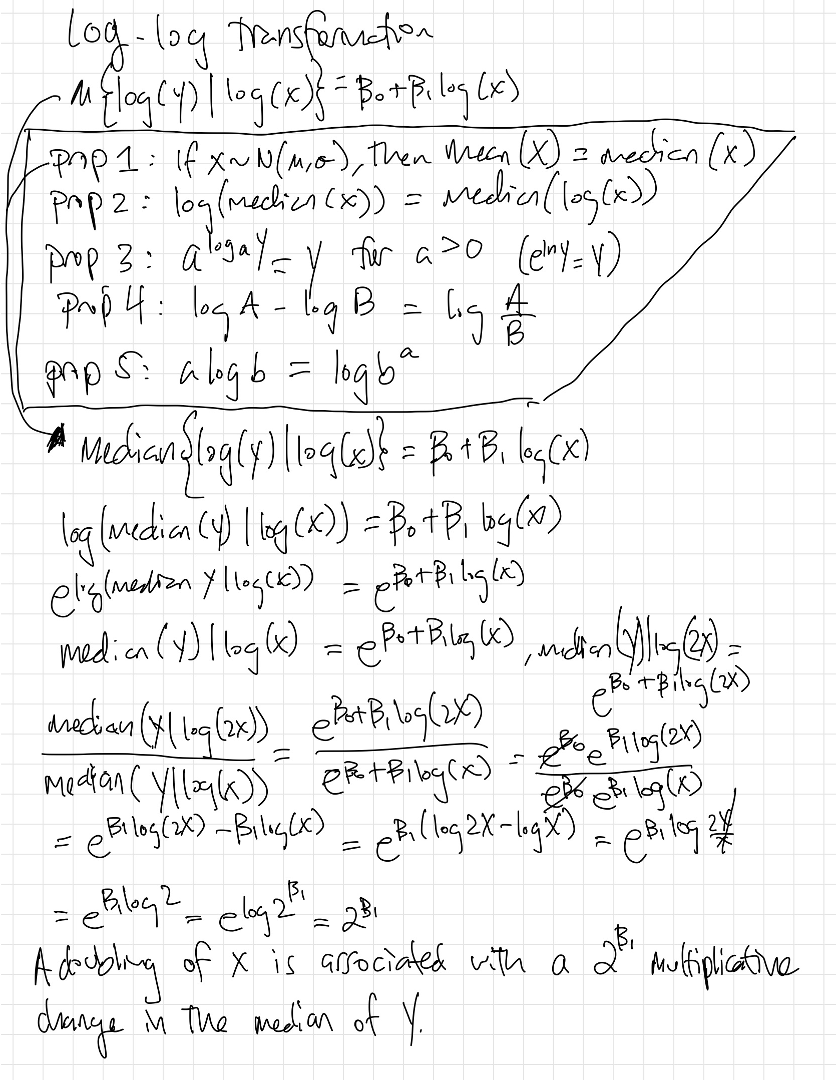 Log-log transformation
μ{log(Y)|log(X)} = β₀+β₁log(X)
prop 1: if X~N(μ,σ), then mean(X) = median(X)
prop 2: log(median(X)) = median(log(X))
prop 3: a^(log_a Y) = Y for a>0 (e^(ln Y) = Y)
prop 4: log A - log B = log A/B
prop 5: a log b = log b^a
Median{log(Y)|log(X)} = β₀+β₁ log(X)
log(median(Y)|log(X)) = β₀+β₁ log(X)
e^(log(median Y|log(X))) = e^(β₀+β₁log(X))
median(Y)|log(X) = e^(β₀+β₁log(X)), median(Y)|log(2X) =
e^(β₀+β₁log(2X))
median(Y|log(2X))/median(Y|log(X)) = e^(β₀+β₁log(2X))/e^(β₀+β₁log(X)) = e^(β₀) e^(β₁log(2X))/e^(β₀) e^(β₁log(X))
= e^(β₁log(2X)-β₁log(X)) = e^(β₁(log2X-logX)) = e^(β₁log 2X/X)
= e^(β₁log2) = e^(log2^(β₁)) = 2^(β₁)
A doubling of X is associated with a 2^(β₁) multiplicative
change in the median of Y.